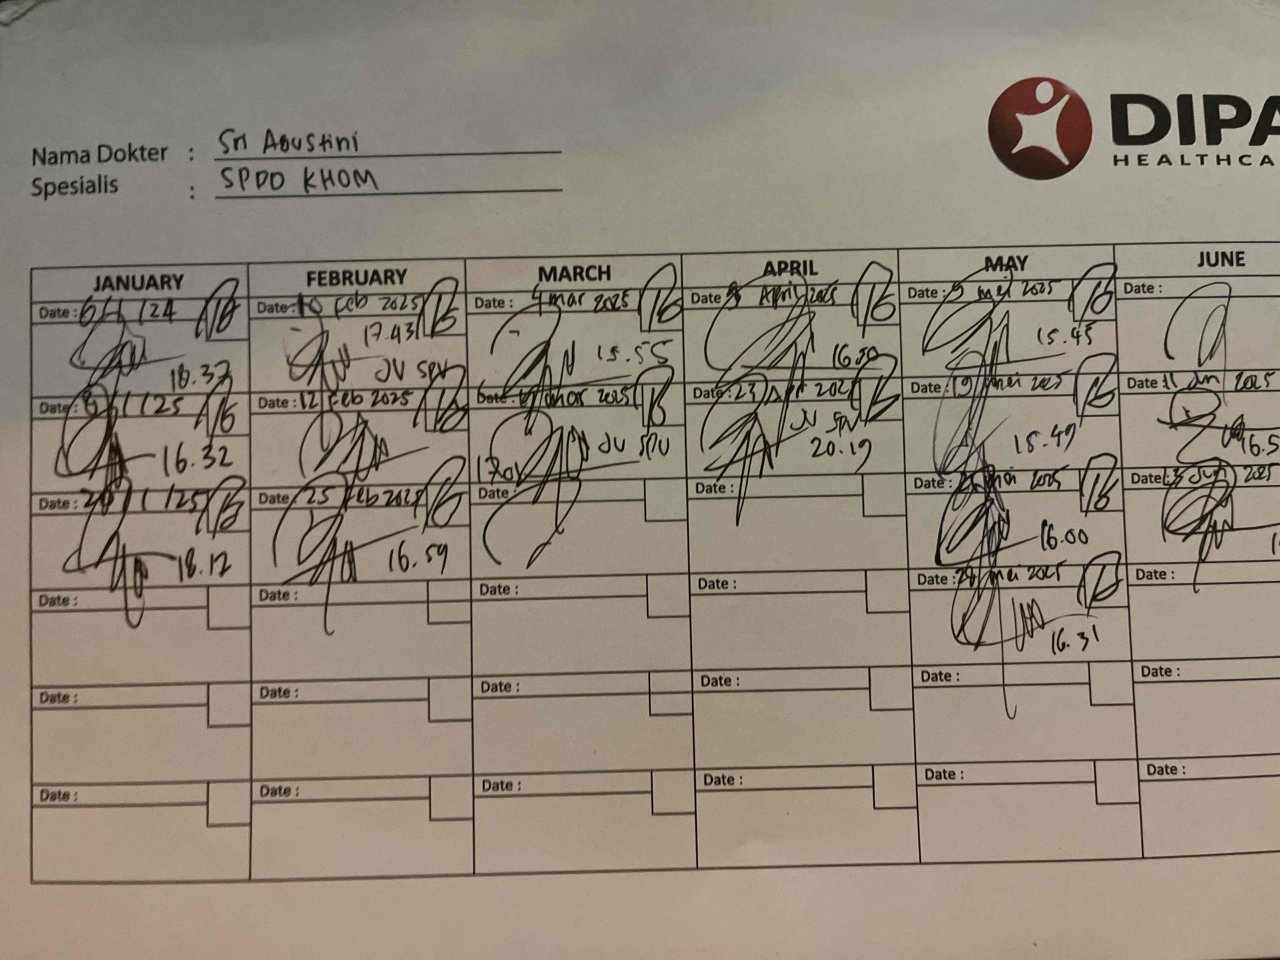 DIPA
HEALTHCA
Nama Dokter : Sri Agustini
Spesialis : SPDO KHOM
JANUARY FEBRUARY MARCH APRIL MAY JUNE
Date : 6/1/24 Date : 10 Feb 2025 Date : 4 mar 2025 Date April 2025 Date : 5 mei 2025 Date :
18.37 17.43 JV SPV 15.55 16.30 15.45
Date : 8/1/25 Date : 12 Feb 2025 Date : mar 2025 Date : 23 Apr 202 Date : 19 mei 2025 Date 11 Jun 2025
16.32 JV SPV JV SPV 20.19 15.49 16.5
Date : 20/1/25 Date : 25 Feb 2025 Date : Date : Date : mei 2025 Date : 13 Jun 2025
18.12 16.59 16.00
Date : Date : Date : Date : Date : 28 mei 2025 Date :
16.31
Date : Date : Date : Date : Date : Date :
Date : Date : Date : Date : Date : Date :